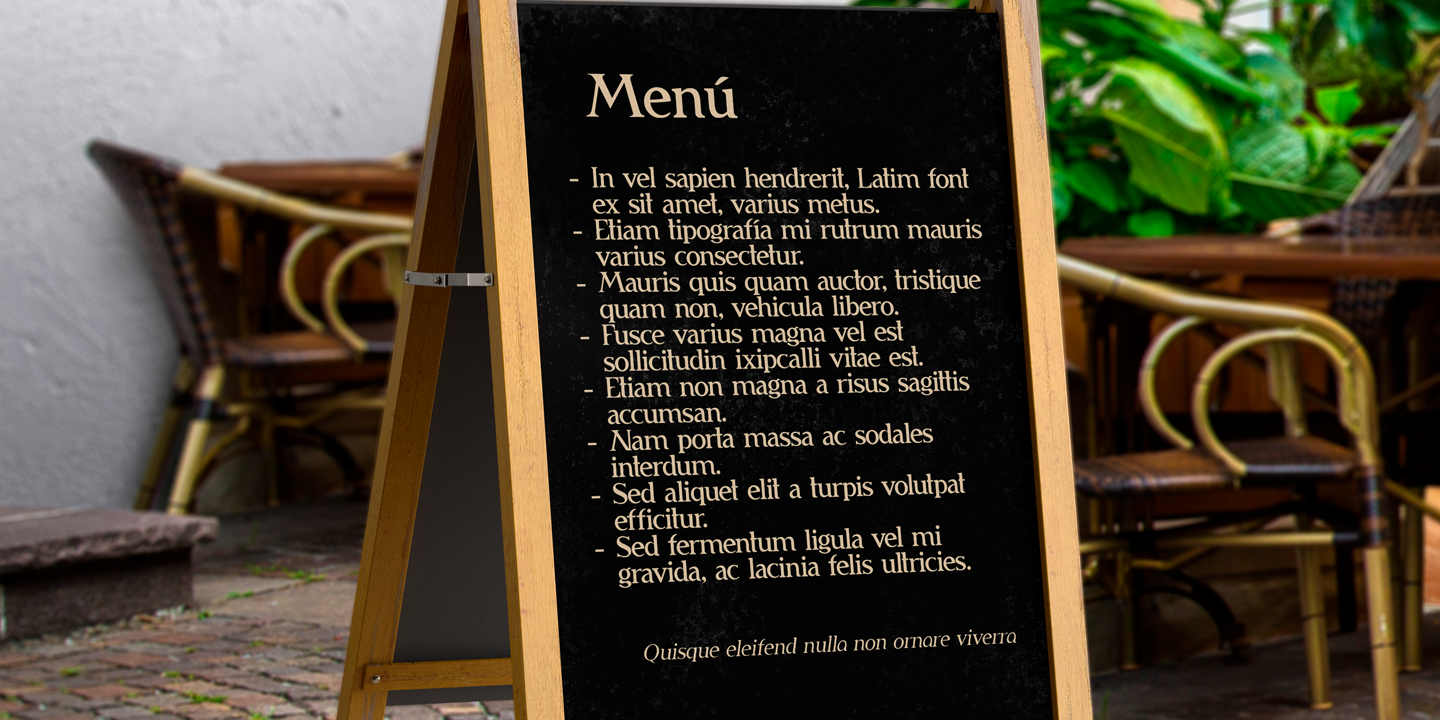 Menú
- In vel sapien hendrerit, Latim font
ex sit amet, varius metus.
- Etiam tipografía mi rutrum mauris
varius consectetur.
- Mauris quis quam auctor, tristique
quam non, vehicula libero.
- Fusce varius magna vel est
sollicitudin ixipcalli vitae est.
- Etiam non magna a risus sagittis
accumsan.
- Nam porta massa ac sodales
interdum.
- Sed aliquet elit a turpis volutpat
efficitur.
- Sed fermentum ligula vel mi
gravida, ac lacinia felis ultricies.
Quisque eleifend nulla non ornare viverra